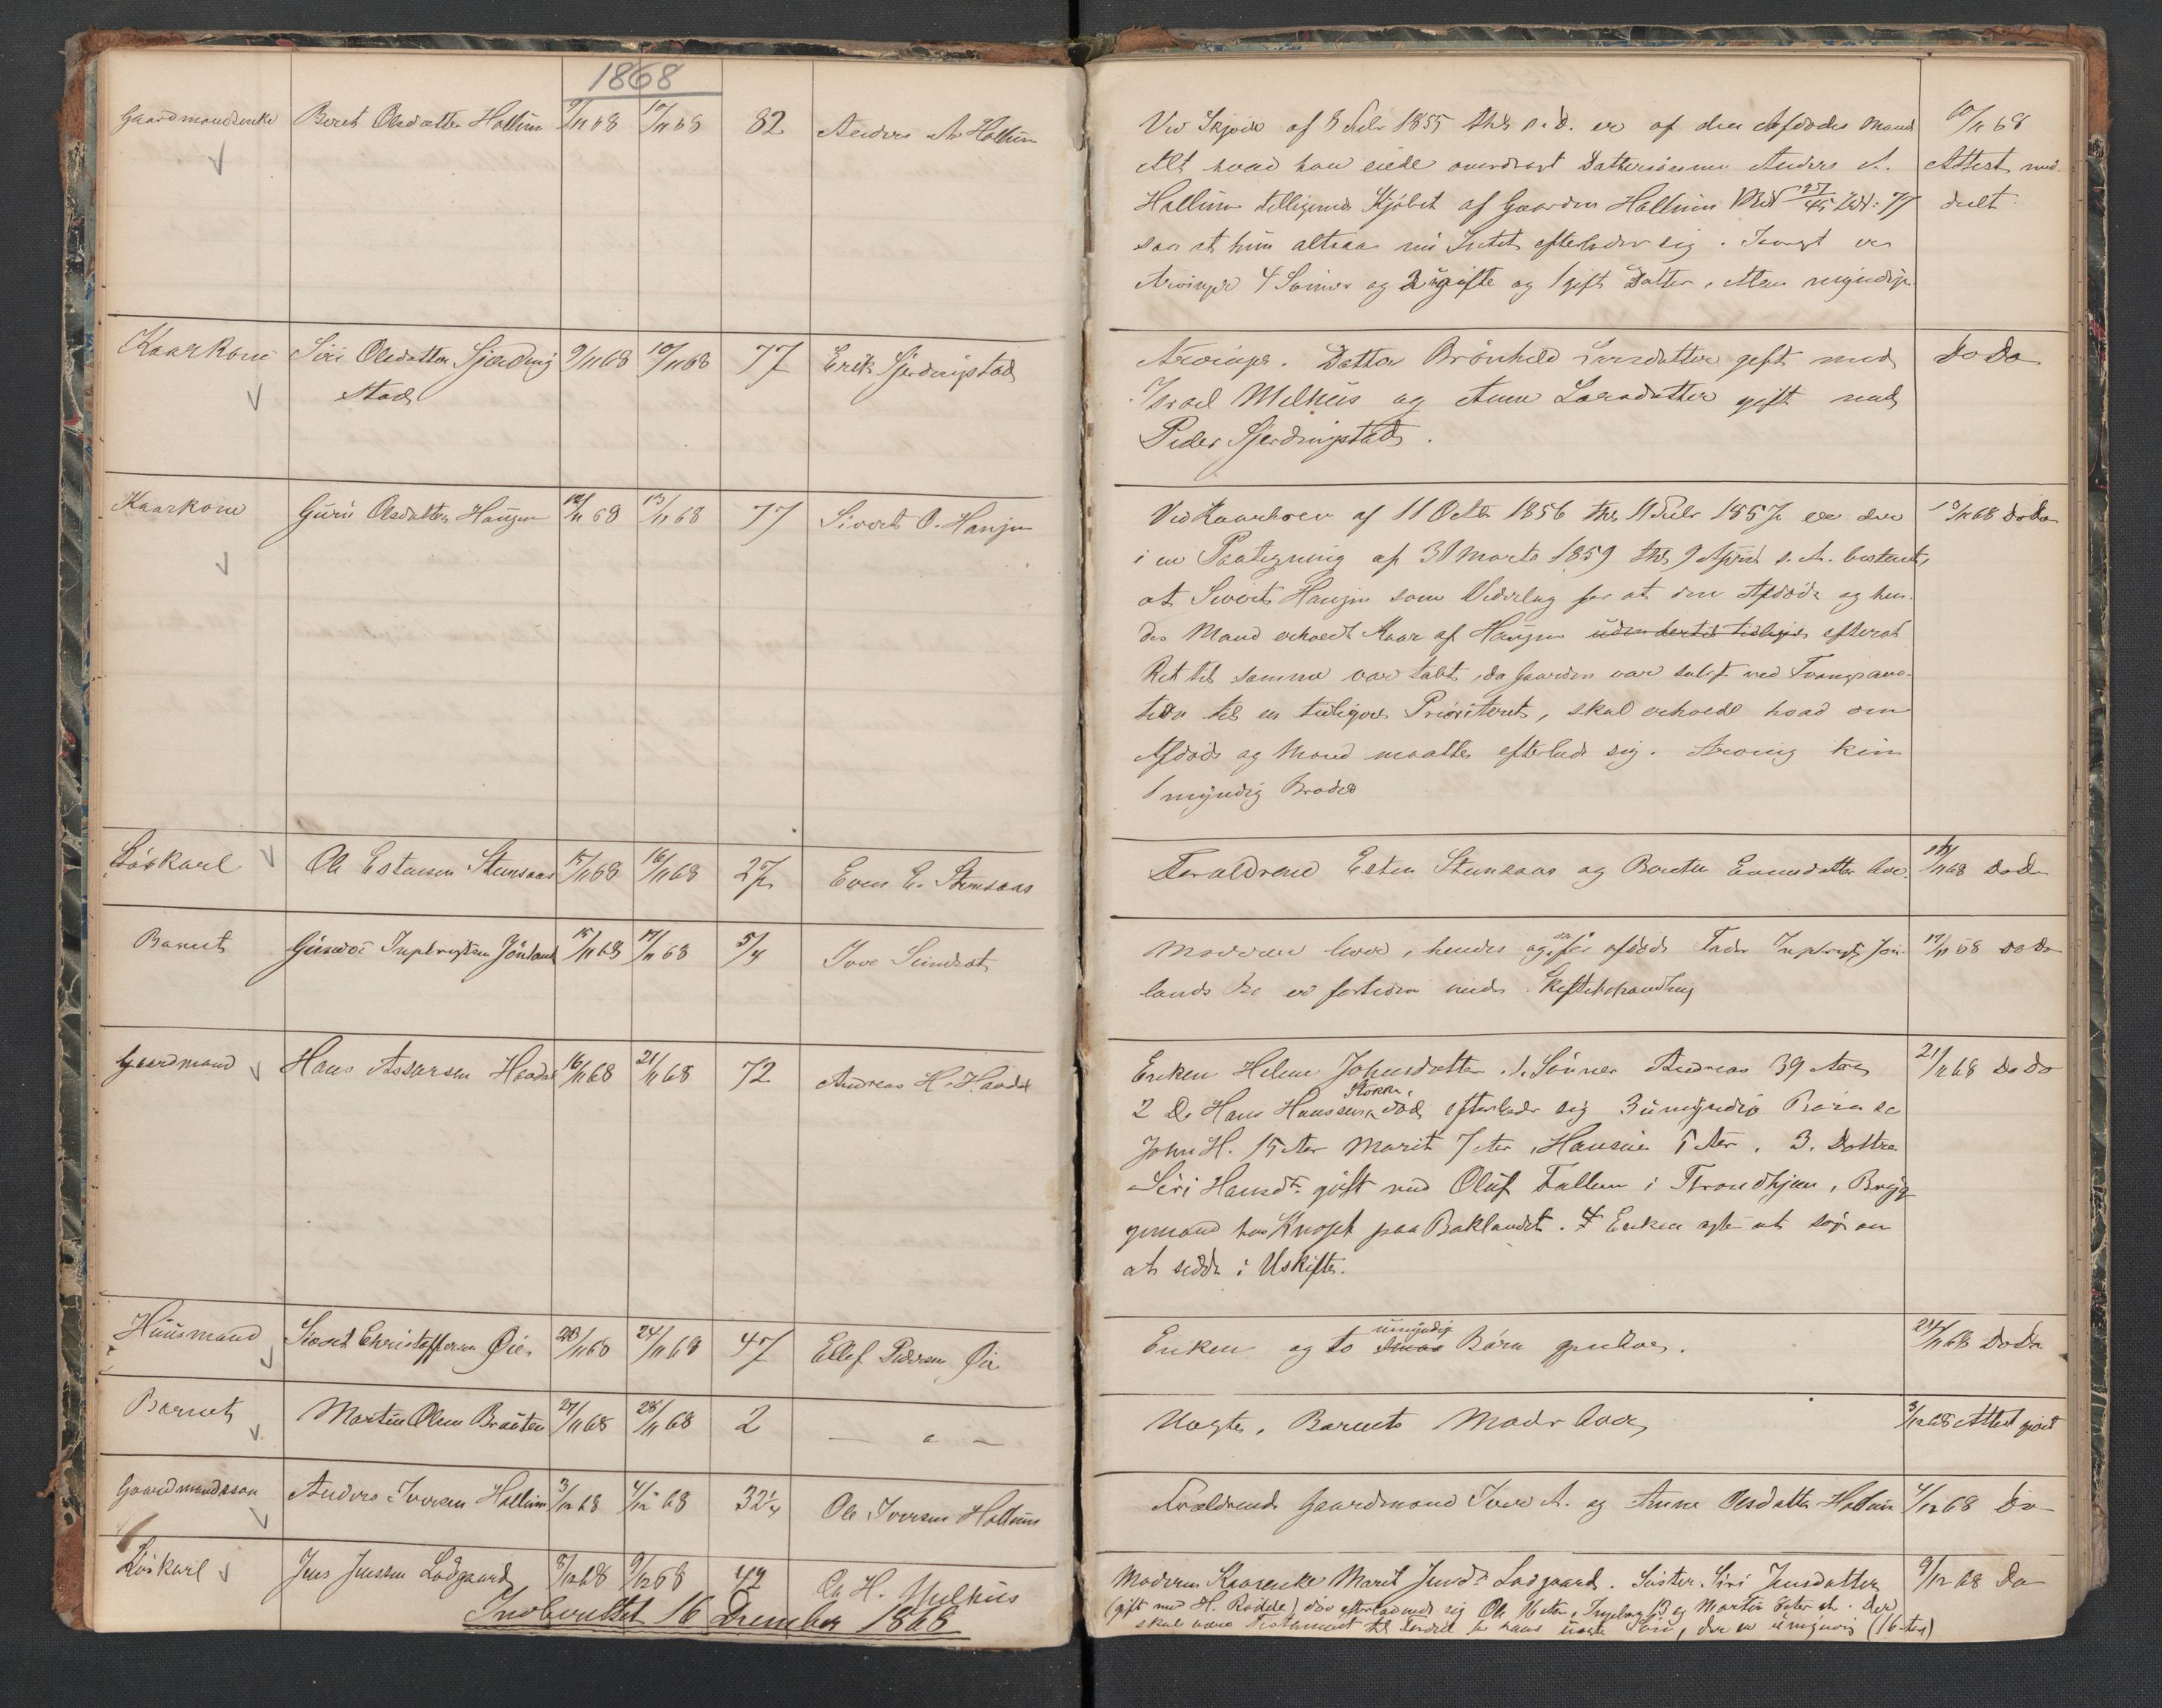 1868
Gaardmandsenke Beret Olsdatter Hollum 9/11 68 10/11 68 82 Anders A. Hollum
Kaarkone Siri Olsdatter Gjerdingstad 9/11 68 10/11 68 77 Erik Gjerdingstad
Kaarkone Guru Olsdatter Haugen 12/11 68 13/11 68 77 Sivert O. Haugen
Løskarl Ole Estensen Stensaas 15/11 68 16/11 68 27 Even E. Stensaas
Barnet Ingebrigtsen 15/11 68 17/11 68 5/4
Gaardmand Hans Assersen 16/11 68 21/11 68 72 Andreas H.
Huusmand Sivert Christoffersen Øie 20/11 68 24/11 68 47 Ellef Pedersen Øie
Barnet Martin Olsen Braaten 27/11 68 28/11 68 2 — " —
Gaardmandssøn Anders Iversen Hollum 3/12 68 4/12 68 32 1/4 Ole Iversen Hollum
Løskarl Jens Jenssen Ladgaard 8/12 68 9/12 68 42 Ole H. Melhus
Indberettet 16 December 1868
Ved Skjøde af 8 Febr 1855 er af den Afdødes Mand 10/11 68
Alt hvad han eiede overdraget Dattersønnen Anders A. Attest med-
Hollum Kjøbet af Gaarden Hollum delt
saa at hun altsaa nu Intet efterlader sig. er
Arvinger 4 Sønner og 2 ugifte og 1 gift Datter, Alle myndige
Arvinger. Datter Brønhild Larsdatter gift med Do Do
Israel Melhus og Anne Larsdatter gift med
Peder Gjerdingstad.
Ved Kaarbrev af 11 Octbr 1856 thl 11 Febr 1857 er der 13/11 68 Do Do
i en Paategning af 31 Marts 1859 thl 9 April s. A. bestemt,
at Sivert Haugen som Vederlag for at den Afdøde og hen-
des Mand erholdt Kaar af Haugen efterat
Ret til samme var tabt, da Gaarden var solgt ved Tvangsauc-
tion til en tidligere Prioritet, skal erholde hvad den
Afdøde og Mand maatte efterlade sig. Arving kun
1 myndig Broder
Forældrene Esten Stensaas og Beret Evensdatter lever. 16/11 68 Do Do
Moderen lever, hendes og før afdøde Fader 17/11 68 Do Do
lands Bo er fortiden under Skiftebehandling
Enken Helene Johnsdatter. 1. Sønner Andreas 39 Aar 21/11 68 Do Do
2 Do Hans Hanssen Stokke, død, efterlader sig 3 umyndige Børn
John H. 15 Aar Marit 7 Aar, 3. Dottre
Siri Hansdtr gift med Oluf Fallem i Trondhjem, Bryg-
gemand hos paa Baklandet. Enken agter at søge om
at sidde i Uskiftet.
Enken og to umyndige Børn gjenlever. 24/11 68 Do Do
Uægte, Barnets Moder lever 3/12 68 Attest
Forældrene Gaardmand Iver A. og Anne Olsdatter Hollum 4/12 68 Do
Moderen Kaarenke Marit Jensdr Ladgaard. Søster Siri Jensdatter 9/12 68 Do
(gift med H. Rødde) død efterladende sig Ole 16 Aar, Ingeborg 13 og Martin 8 Aar. Der
skal være Testament til Fordel for hans uægte Søn, der er umyndig (16 Aar)